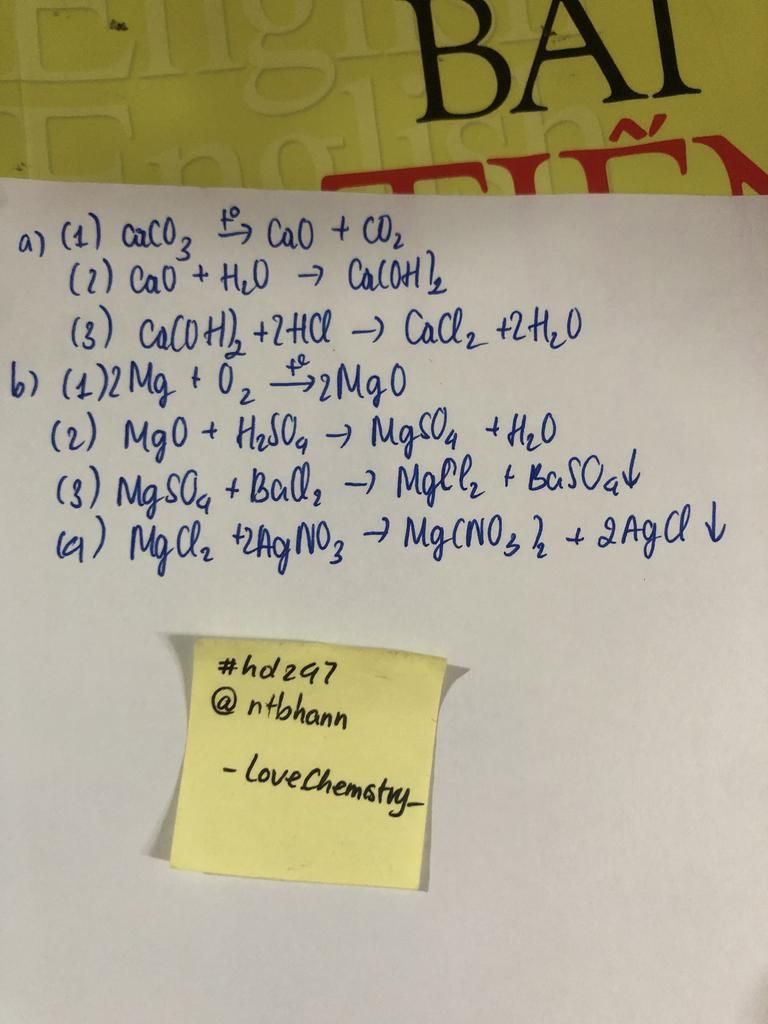 English
English
BÀI
TIẾN
a) (1) CaCO₃ t° → CaO + CO₂
(2) CaO + H₂O → Ca(OH)₂
(3) Ca(OH)₂ + 2HCl → CaCl₂ + 2H₂O
b) (1) 2Mg + O₂ t° → 2MgO
(2) MgO + H₂SO₄ → MgSO₄ + H₂O
(3) MgSO₄ + BaCl₂ → MgCl₂ + BaSO₄↓
(4) MgCl₂ + 2AgNO₃ → Mg(NO₃)₂ + 2AgCl ↓
#hd297
@ntbhann
-LoveChemistry-